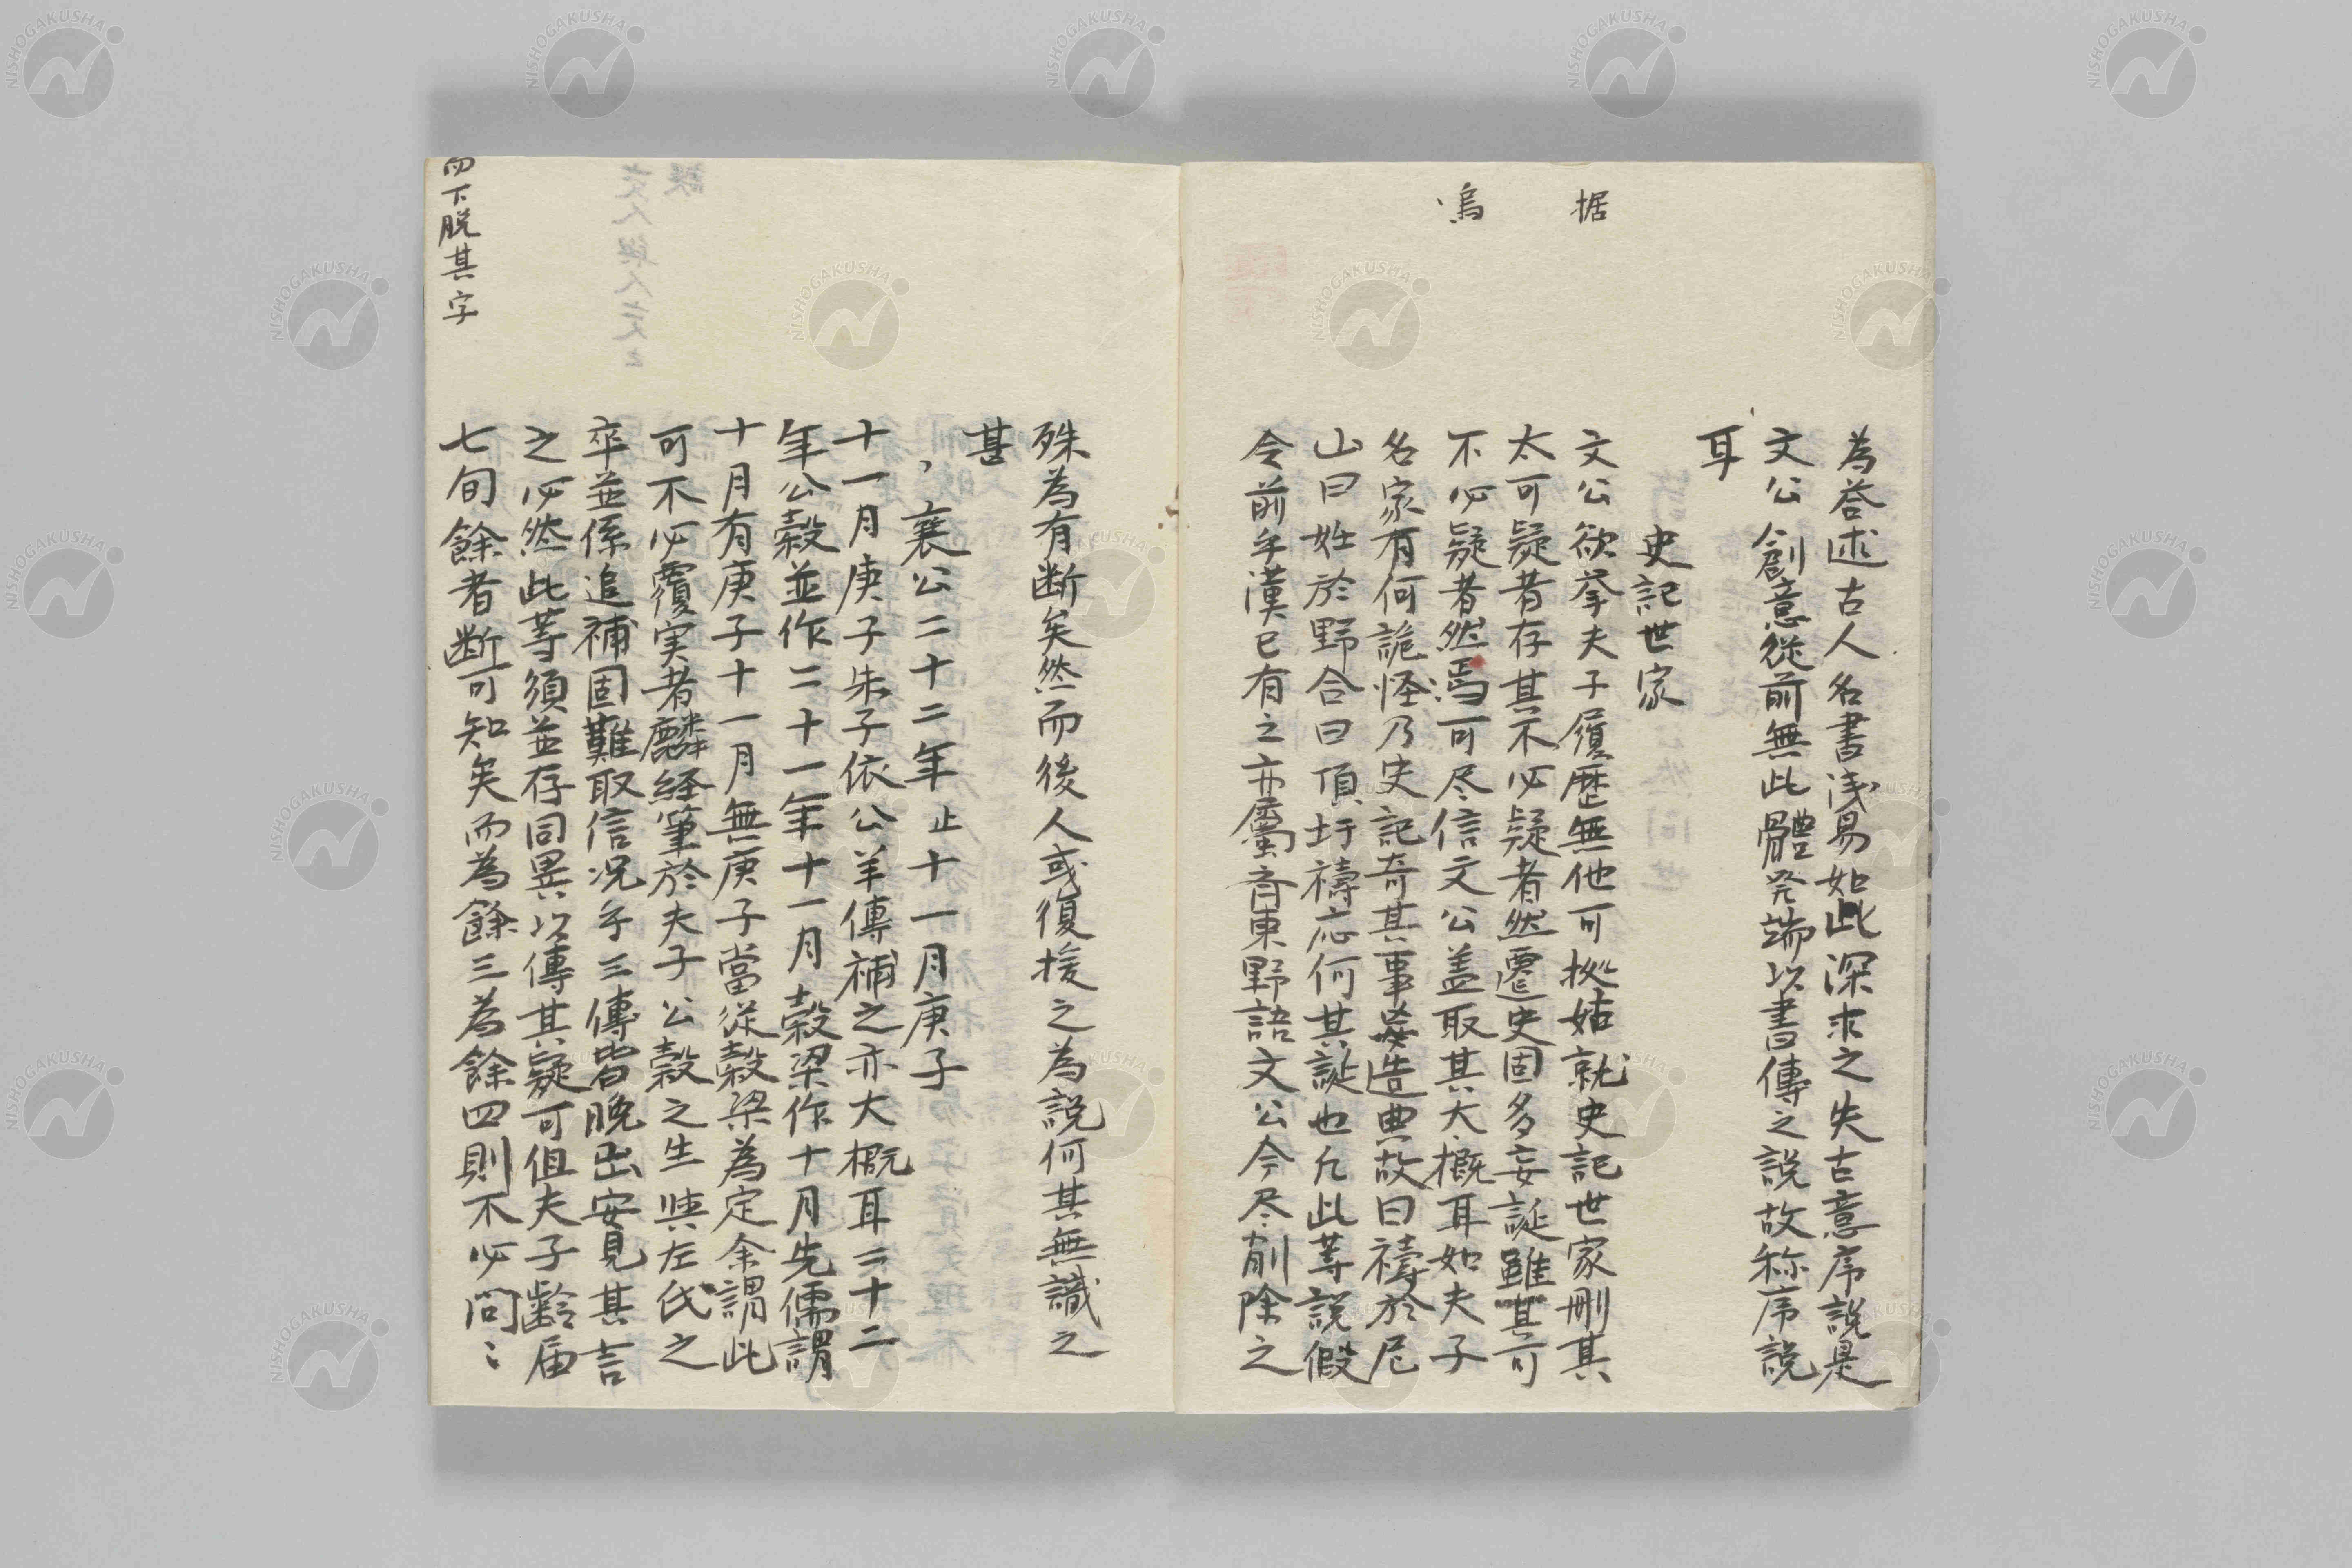 据
嗚
為答述古人名書浅易如此深求之失古意序説是
文公創意従前無此體発端以書傳之説故称序説
耳
史記世家
文公欲挙夫子履歴無他可拠姑就史記世家刪其
太可疑者存其不必疑者然遷史固多妄誕雖其可
不必疑者然焉可尽信文公盖取其大概耳如夫子
名家有何詭怪乃史記奇其事妄造典故曰禱於尼
山曰姙於野合曰頂圩禱応何其誕也凡此等説假
令前乎漢已有之亦属斉東野語文公今尽削除之
殊為有断矣然而後人或復援之為説何其無識之
甚
襄公二十二年止十一月庚子
十一月庚子朱子依公羊傳補之亦大概耳二十二
年公穀並作二十一年十一月穀梁作十月先儒謂
十月有庚子十一月無庚子當従穀梁為定余謂此
可不必覆実者麟経筆於夫子公穀之生與左氏之
卒並係追補固難取信况乎三傳皆晩出安見其言
之必然此等須並存同異以傳其疑可但夫子齢届
七旬餘者断可知矣而為餘三為餘四則不必問〻
而下脱其字
NISHOGAKUSHA